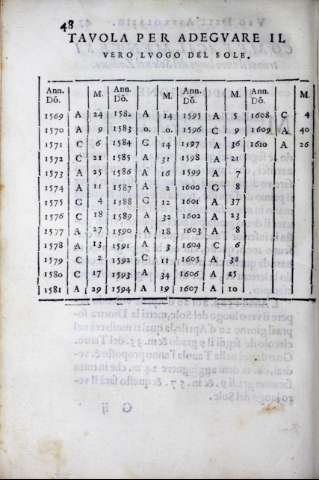 48
TAVOLA PER ADEGVARE IL
VERO LVOGO DEL SOLE.
Ann. Dõ. M. Ann. Dõ. M. Ann. Dõ. M. Ann. Dõ. M.
1569 A 24 1582 A 14 1595 A 5 1608 C 4
1570 A 9 1583 0. 0. 1596 C 9 1609 A 40
1571 C 6 1584 G 14 1597 A 36 1610 A 26
1572 C 21 1585 A 31 1598 A 21
1573 A 25 1586 A 16 1599 A 7
1574 A 11 1587 A 2 1600 G 8
1575 G 4 1588 G 12 1601 A 37
1576 C 18 1589 A 32 1602 A 23
1577 A 27 1590 A 18 1603 A 8
1578 A 13 1591 A 3 1604 C 6
1579 C 2 1592 C 11 1605 A
1580 C 17 1593 A 34 1606 A 25
1581 A 29 1594 A 19 1607 A 10